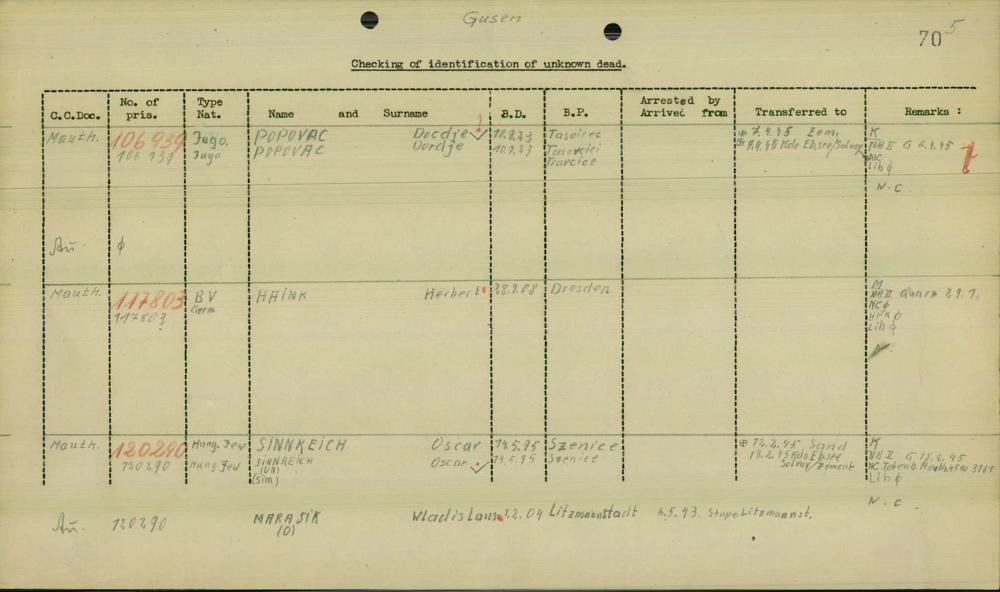 Gusen
70 5
Checking of identification of unknown dead.
C.C.Doc. No. of pris. Type Nat. Name and Surname B.D. B.P. Arrested by Arrived from Transferred to Remarks :
Mauth. 106 939 Jugo. POPOVAC Docdje 10.9.23 Tasoirec 7.4.45 Zem. K
106 939 Jugo POPOVAC Dordje 10.9.23 Tasovcici 9.4.45 Kdo Ebsee/Solvay NA II G 6.4.45
Travcice NC
Lib ϕ
N.C.
Au. ϕ
Mauth. 117803 BV HAINK Herbert 28.9.08 Dresden M
117803 Germ NA II Quarz 29.1.
NC ϕ
HPK ϕ
Lib ϕ
Mauth. 120290 Hung. Jew SINNREICH Oscar 14.5.95 Szenice 12.2.45 Sand K
120290 Hung. Jew SINNREICH Oscar 14.5.95 Szenice 13.2.45 Kdo. Ebsee NA II G 12.2.45
(UN) Solvay/Zement NC Totenb. Mauth. 45 No 3161
(Sim) Lib ϕ
N.C.
Au. 120290 MARASIK Wladislaus 2.2.04 Litzmannstadt 6.5.43. Stapo Litzmannst.
(O)